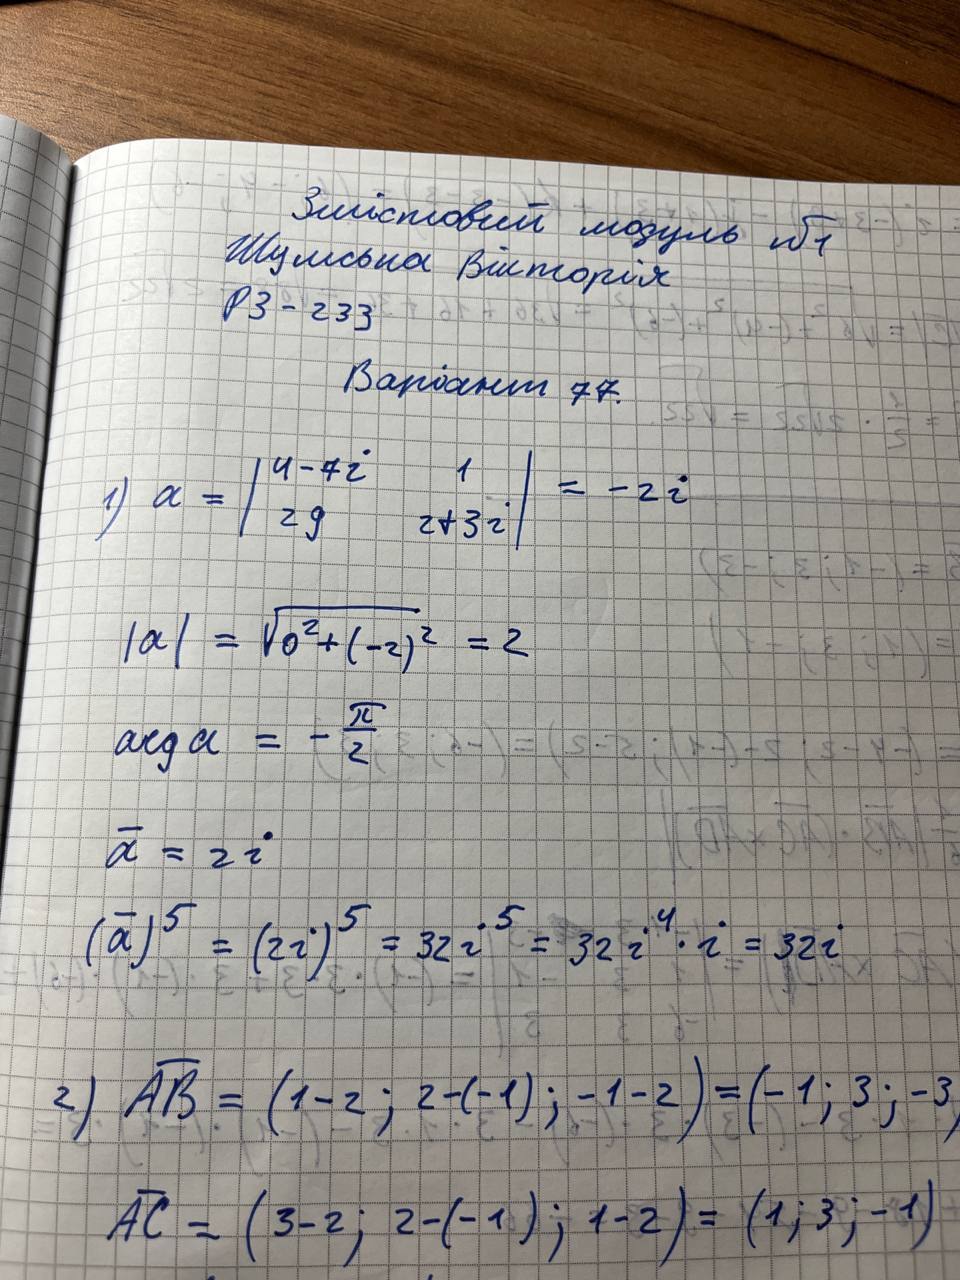 Змістовий модуль №1
Шумська Вікторія
РЗ-233
Варіант 77.
1) a = |4-7i 1| = -2i
|29 2+3i|
|a| = √(0²+(-2)²) = 2
arg a = -π/2
ā = 2i
(ā)⁵ = (2i)⁵ = 32i⁵ = 32i⁴·i = 32i
2) AB = (1-2; 2-(-1); -1-2) = (-1; 3; -3)
AC = (3-2; 2-(-1); 1-2) = (1; 3; -1)